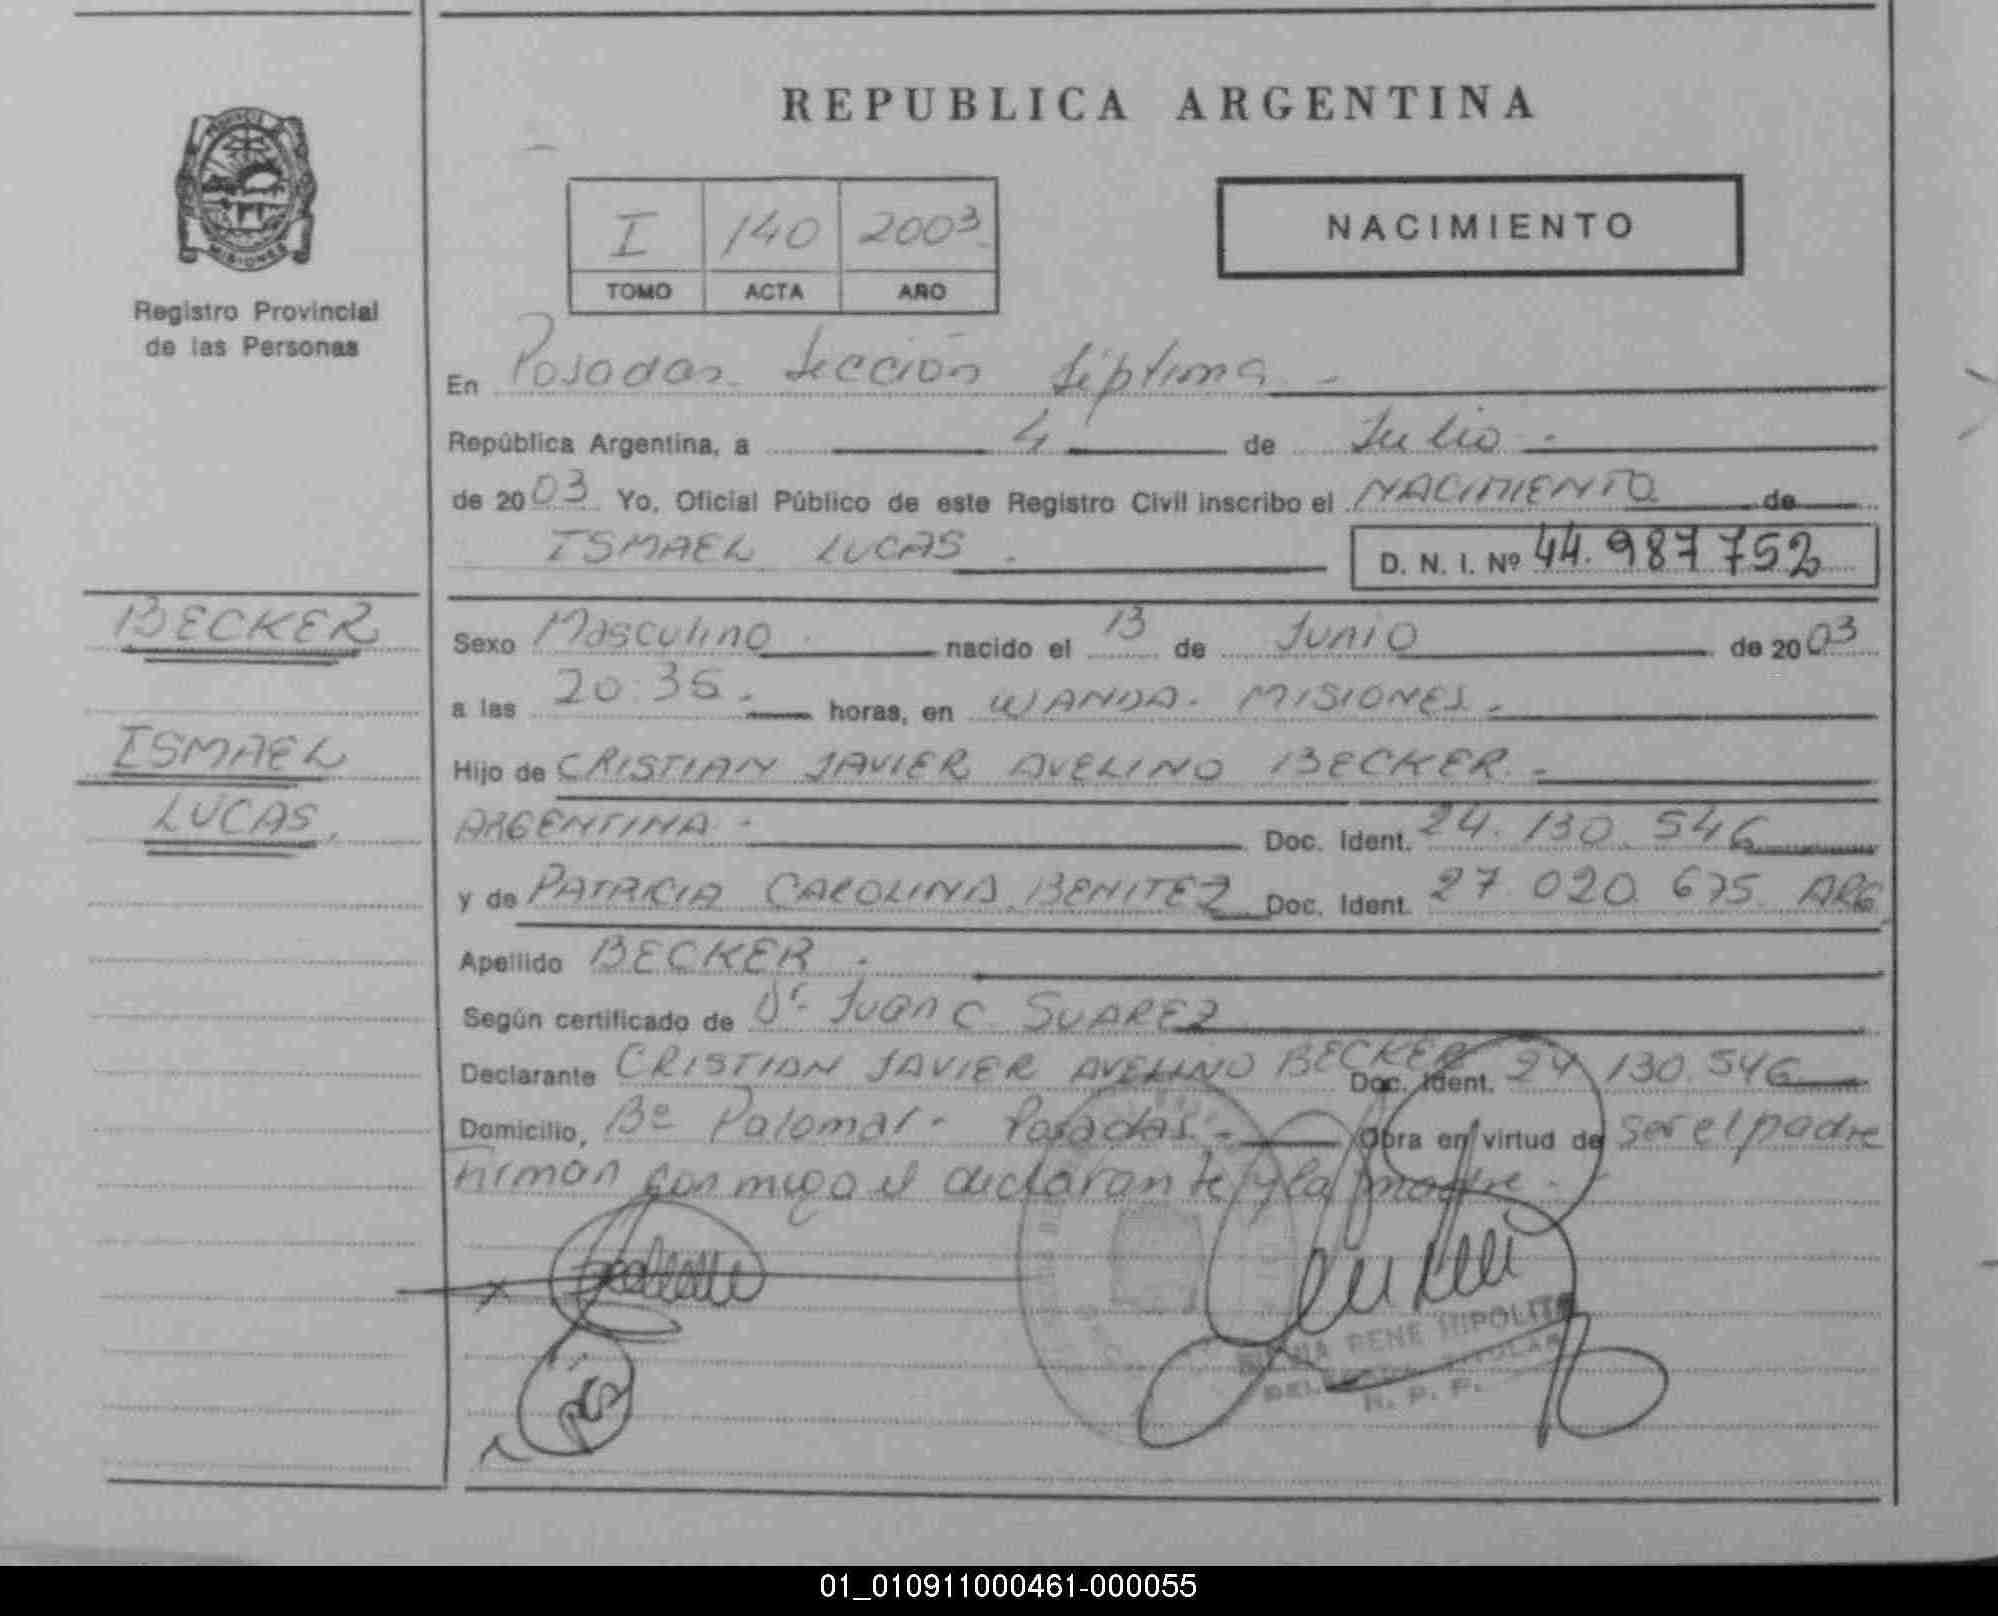 REPUBLICA ARGENTINA
PROVINCIA DE
MISIONES
Registro Provincial
de las Personas
I 140 2003
TOMO ACTA AÑO
NACIMIENTO
En Posadas Sección Séptima
República Argentina, a 4 de Julio
de 2003 Yo, Oficial Público de este Registro Civil inscribo el NACIMIENTO de
ISMAEL LUCAS D. N. I. Nº 44.987752
BECKER
ISMAEL
LUCAS
Sexo Masculino nacido el 13 de Junio de 2003
a las 20:35 horas, en WANDA - MISIONES
Hijo de CRISTIAN JAVIER AVELINO BECKER
ARGENTINA Doc. Ident. 24.130.546
y de PATRICIA CAROLINA BENITEZ Doc. Ident. 27 020 675 ARG
Apellido BECKER
Según certificado de Dr. Juan C. SUAREZ
Declarante CRISTIAN JAVIER AVELINO BECKER Doc. Ident. 24 130.546
Domicilio, Bº Palomar - Posadas - Obra en virtud de ser el padre
Firman conmigo el declarante y la madre.
RENE HIPOLITO
R. P. P.
01_010911000461-000055